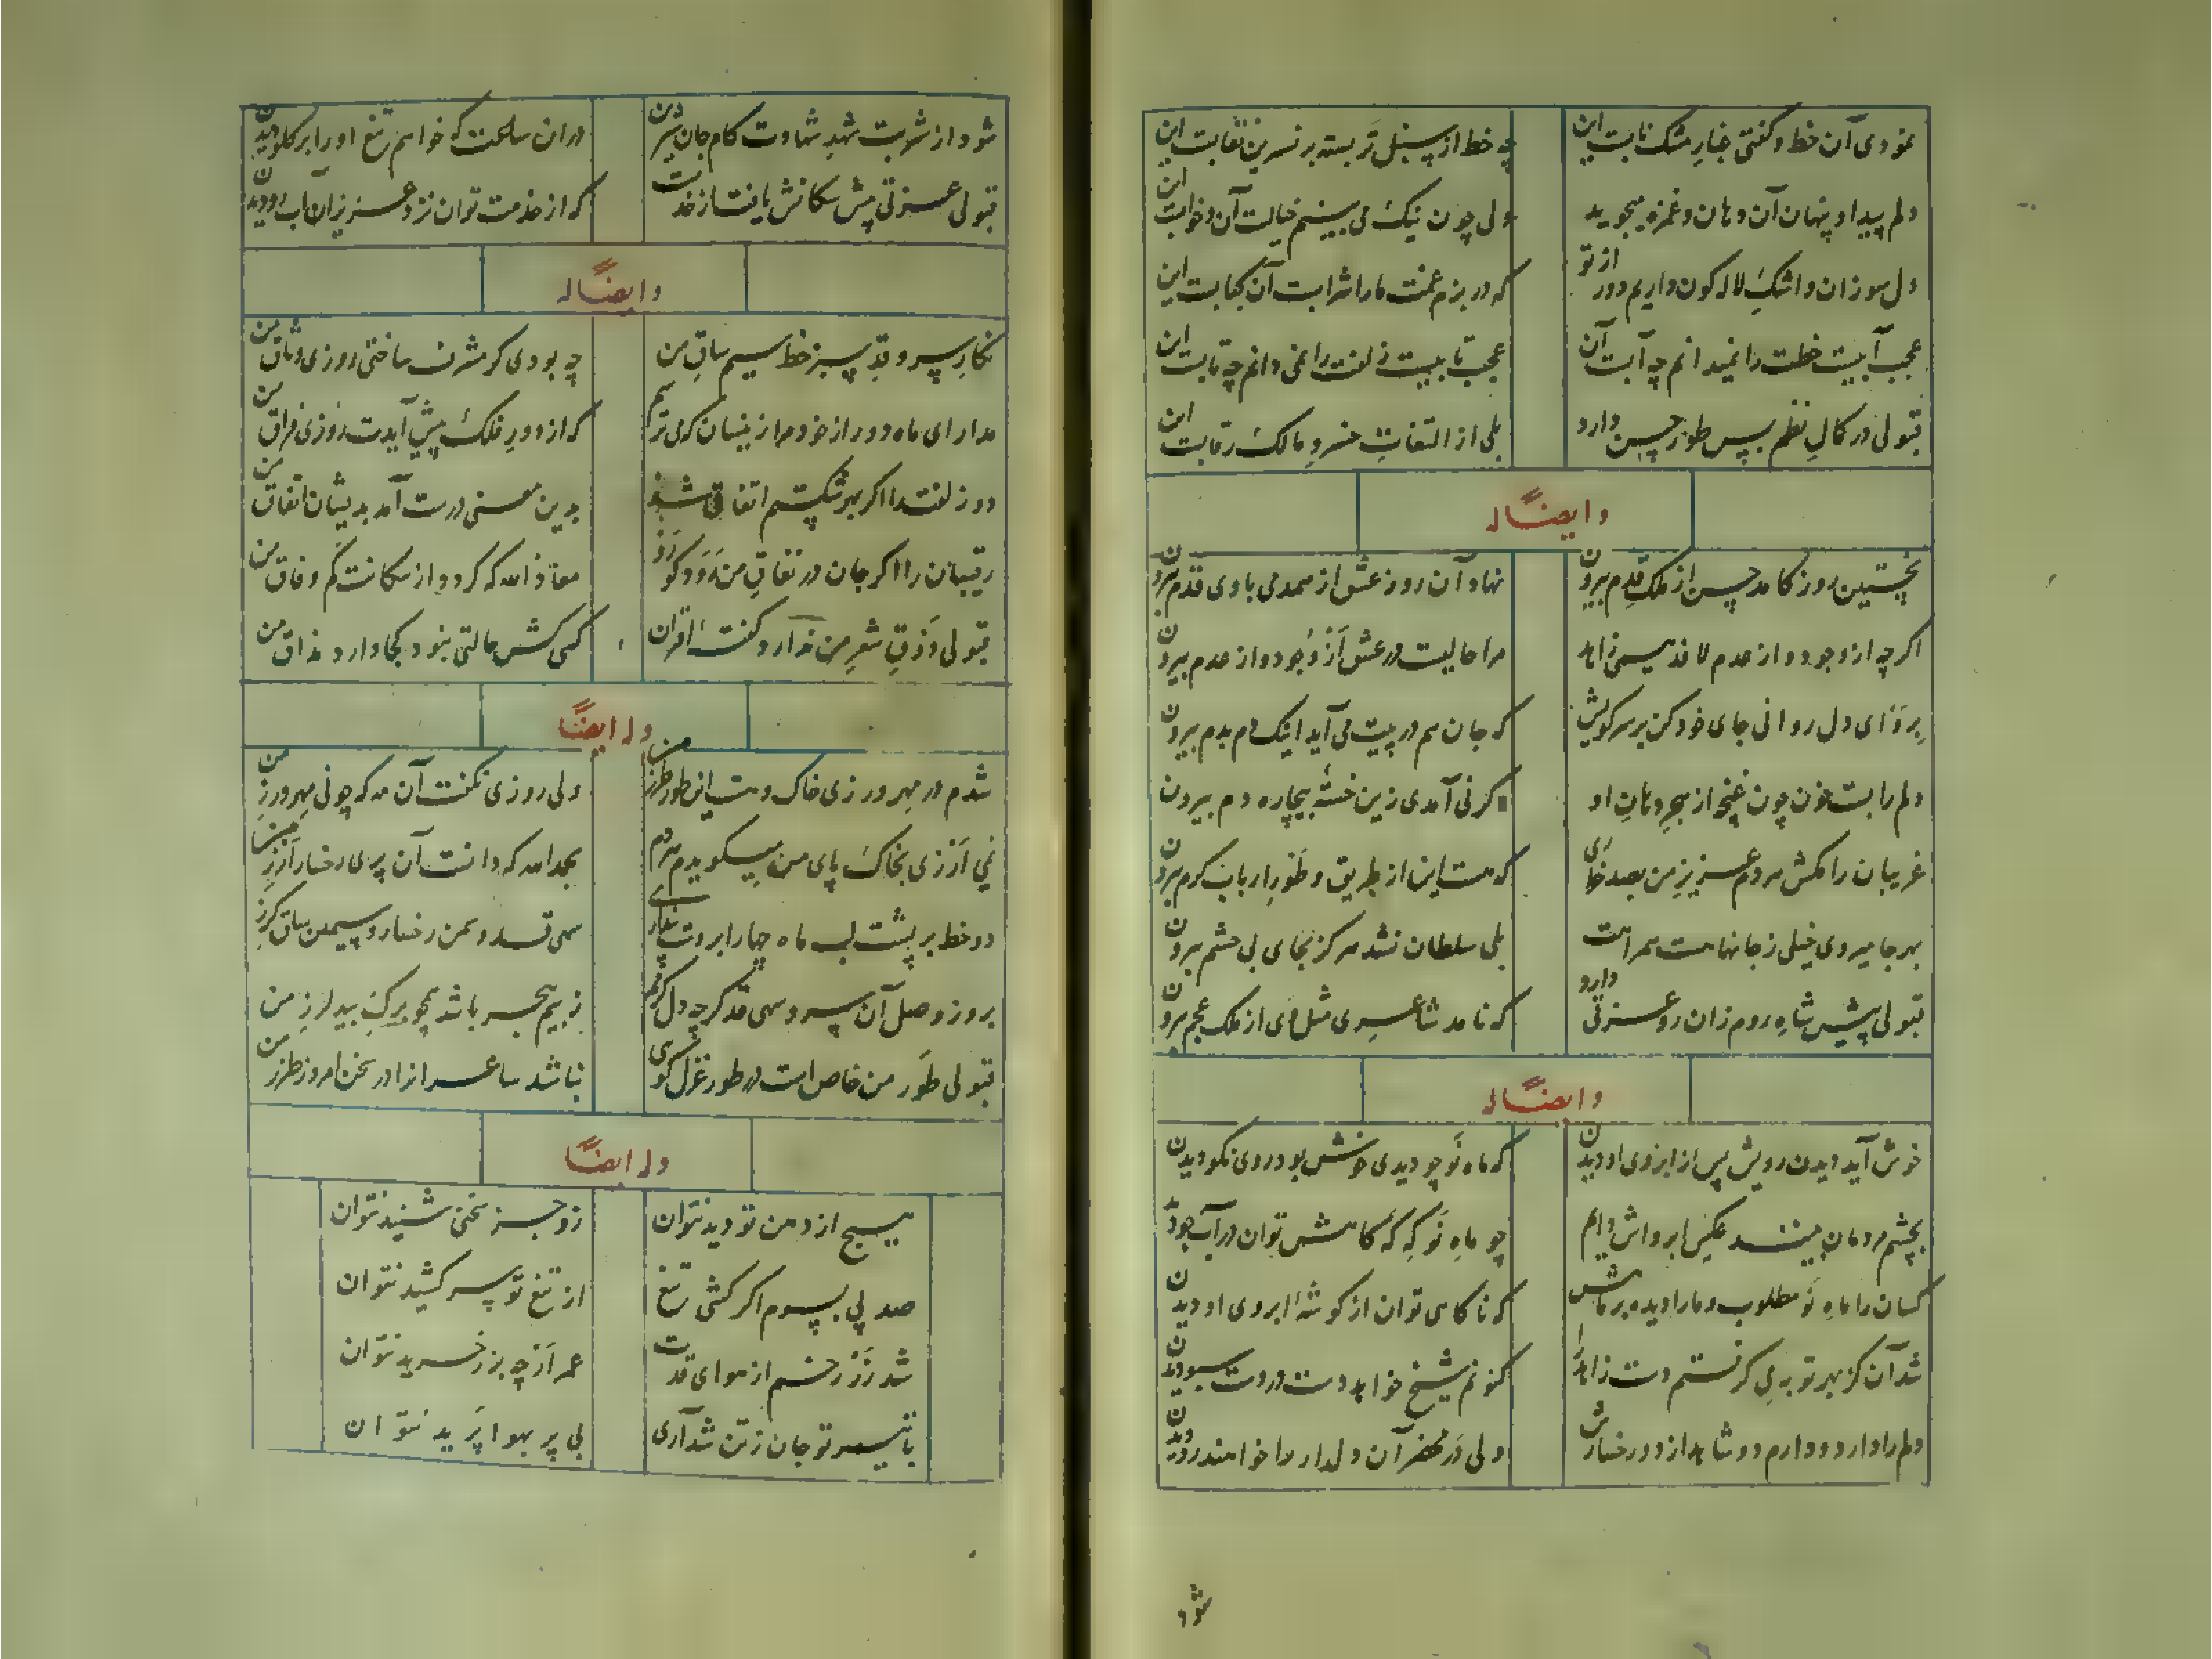 نمودی آن خط و گفتی غبار مشک نابست این
چه خط از سنبل تر بسته بر نسرین نقابست این
دلم پیدا و پنهان آن دهان و غمزه میجوید
ولی چون نیک می بینم خیالست آن و خوابست این
دل سوزان و اشک لاله کون داریم دور از تو
که در بزم غمت ما را شرابست آن کبابست این
عجب آبیست خطت را نمیدانم چه آبست آن
عجب تابیست زلفت را نمی دانم چه تابست این
قبولی در کمال نظم بس طور حسن دارد
بلی از التفات خسرو مالک رقابست این
وایضاً له
نخستین روز کامد حسن از ملک قدم بیرون
نهاد آن روز عشق از همدمی با وی قدم بیرون
اگر چه از وجود و از عدم لافد همی زاهد
مرا حالیست در عشق از وجود و از عدم بیرون
برو ای دل روانی جای خود کن بر سر کویش
که جان هم در پیت می آید اینک دم بدم بیرون
دلم را بست خون چون غنچه از هجر دهان او
کر نی آمدی زین خسته بیچاره دم بیرون
غریبان را مکش مردم عزیز من بصد خواری
که هست این از طریق و طور ارباب کرم بیرون
بهر جا میروی خیلی ز جانها هست همراهت
بلی سلطان نشد هرکز بجای بی حشم بیرون
قبولی پیش شاه روم زان رو عزتی دارد
که نامد شاعری مثل وی از ملک عجم بیرون
وایضاً له
خوش آید دیدن رویش پس از ابروی او دیدن
که ماه نو چو دیدی خوش بود روی نکو دیدن
بچشم مردمان بینند عکس ابرواش دایم
چو ماه نو که که کاهش توان در آب جو دیدن
کسان را ماه نو مطلوب و ما را دیده بر ماهش
که ناکاهی توان از کوشهٔ ابروی او دیدن
شد آن کز بهر توبه می کرفتم دست زاهد را
کنونم شیخ خواهد دست در دست سبو دیدن
دلم را دارد و دارم دو شاهد از دو رخسارش
ولی در محضر آن دلدار را خواهند رو دیدن
شود
شود از شربت شهد شهادت کام جان شیرین
در ان ساعت که خواهم تیغ او را بر کلو دیدن
قبولی عزتی پیش سکانش یافت از خدمت
که از خدمت توان نزد عزیزان آب رو دیدن
وایضاً له
نکار سرو قد سبز خط سیم ساق من
چه بودی کر مشرف ساختی روزی وثاق من
مدار ای ماه دور از خود مرا زینسان که می ترسم
که از دور فلک پیش آیدت روزی فراق من
دو زلفت را اکر بهر شکستم اتفاقی شد
بدین معنی درست آمد بدیشان اتفاق من
رقیبان را اکر جان در نفاق من رود کو رو
معاذ الله که کردد از سکانت کم وفاق من
قبولی ذوق شعر من ندارد کفتهٔ اقران
کسی کش حالتی نبود کجا دارد مذاق من
وله ایضاً
شدم در مهر ورزی خاک و هست این طور طرز من
ولی روزی نکفت آن مه که چونی مهرورز من
نمی ارزی بخاک پای من میکویدم هر دم
بحمد الله که دانست آن پری رخسار ارز من
دو خط بر پشت لب ماه چهار ابروست پنداری
سهی قد و سمن رخسار و سیمین ساق کرز من
بروز وصل آن سرو سهی قد کرچه دل کرمم
ز بیم هجر باشد همچو برک بید لرز من
قبولی طور من خاص است در طور غزل کویی
نباشد شاعران را در سخن امروز طرز من
وله ایضاً
هیچ از دهن تو دید نتوان
زو جز سخنی شنید نتوان
صد پی بسرم اکر کشی تیغ
از تیغ تو سر کشید نتوان
شد زر رخم از هوای قدت
عمر ارچه بزر خرید نتوان
با تیر تو جان ز تن شد آری
بی پر بهوا پرید نتوان